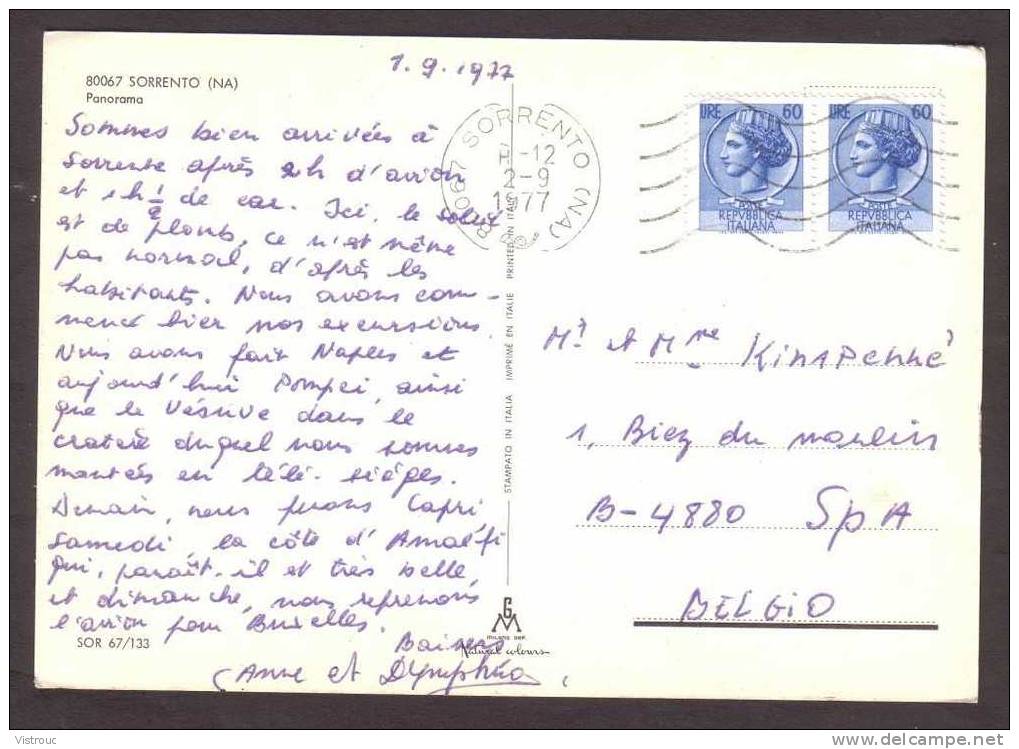 1.9.1977
80067 SORRENTO (NA)
Panorama
Sommes bien arrivées à
Sorrente après 2h d'avion
et 1h 1/2 de car. Ici, le soleil
est de plomb, ce n'est même
pas normal, d'après les
habitants. Nous avons com-
mencé hier nos excursions.
Nous avons fait Naples et
aujourd'hui Pompei, ainsi
que le Vésuve dans le
cratère duquel nous sommes
montées en télé-sièges.
Demain, nous ferons Capri,
samedi, la côte d'Amalfi
qui, paraît-il est très belle,
et dimanche, nous reprenons
l'avion pour Bruxelles.
Baisers
Anne et Dymphna
SOR 67/133
80067 SORRENTO (NA)
-12
2-9
1977
LIRE 60
POSTE
REPVBBLICA
ITALIANA
LIRE 60
POSTE
REPVBBLICA
ITALIANA
STAMPATO IN ITALIA IMPRIMÉ EN ITALIE PRINTED IN ITALY
Mr et Mme
1, Biez du moulin
B-4880 SpA
BELGIO
GM
MILANO DEP.
Natural colours
Vistrouc
delcampe.net